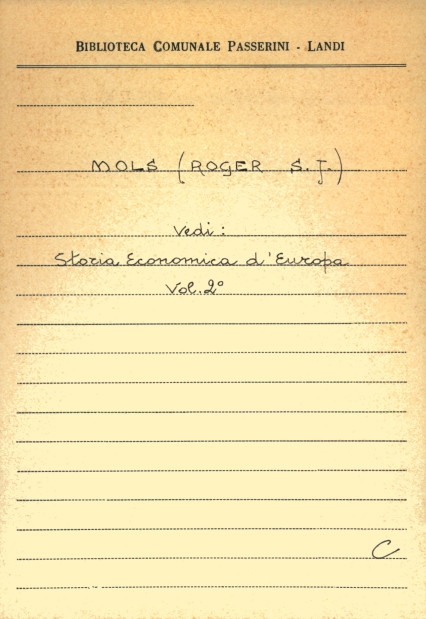 BIBLIOTECA COMUNALE PASSERINI - LANDI
MOLS (ROGER S.J.)
Vedi:
Storia Economica d'Europa
Vol. 2°
C